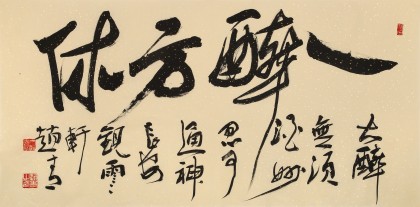 一醉方休
大醉
無須
酒妙
思可
通神
長安
觀雲
軒
趙